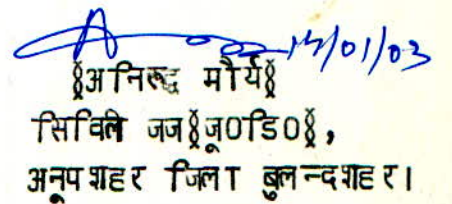 13/01/03
§अनिरूद्ध मौर्य§
सिविल जज§जू0डि0§,
अनूपशहर जिला बुलन्दशहर।